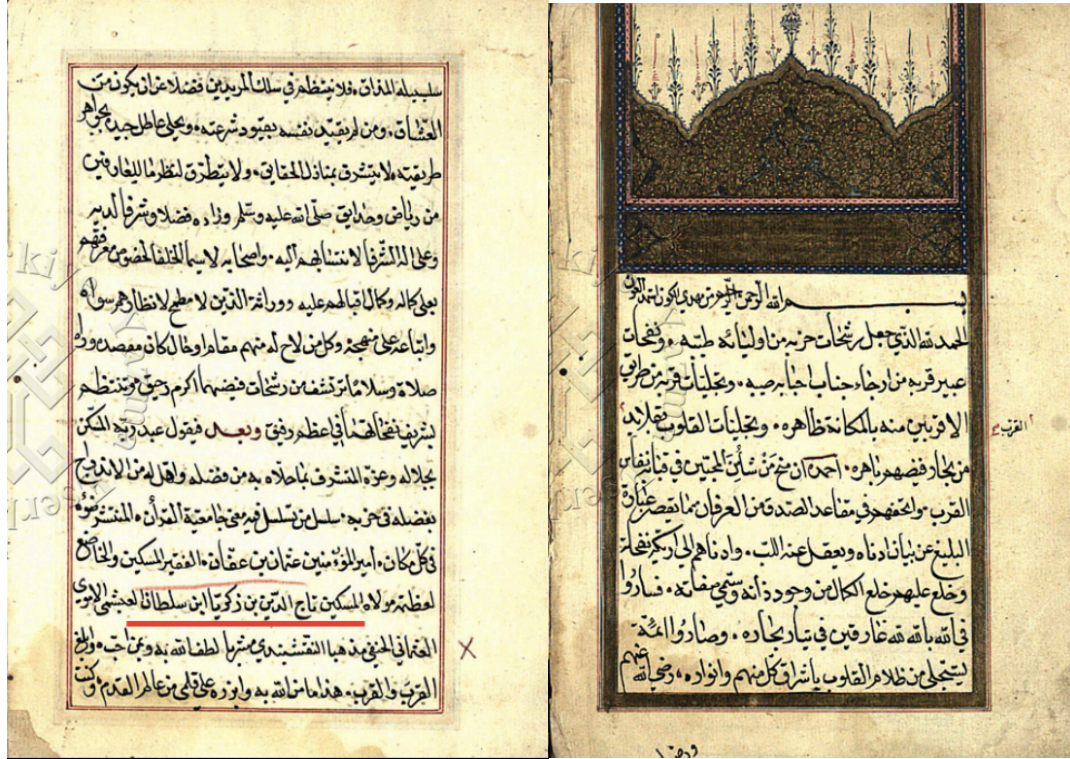 بسم الله الرحمن الرحيم
الحمد لله الذي جعل رشحات حزبه من اوليائه طيبه ونفحات
عبير قربه من ارجاء جناب صيبه وتجليات قربه من طريق
الاقربين منه بالمكانة ظاهره وتجليات القلوب بقلايد
القرب
من بحار فيضهم باهره احمده ان منح من المحبين في نفايس
القرب واتحفهم في مقاعد الصدق من العرفان مما يقصر عبارة
البليغ عن بيان ادناه ويعقل عنه اللب وادناهم الى اريكة
وخلع عليهم خلع الكمال من وجود ذاته وسمي صفاته فساروا
في الله بالله لله غارقين في تيار بحاره وصاروا ائمة
يستجلى من ظلام القلوب باشراق كل منهم وانواره رضي الله عنهم
سلسبيله المذاق فلا ينتظم في سلك المريدين فضلا عن ان يكون من
العشاق ومن لم يقيد نفسه بقيود شرعته ويحلى عاطل جيده بجواهر
طريقته لا يتشرف بمنازل الحقايق ولا يتطرق لنظر ما للعارفين
من رياض وحدايق صلى الله عليه وسلم وزاده فضلا وشرفا لديه
وعلى اله الشرفا لانتسابهم اليه واصحابه لا سيما الخلفا
بعلي كماله وكمال اقبالهم عليه ووراثة الذين لا مطمح لانظارهم سواه
واتباعه على منهجه وكل من لاح له منهم مقام او حال كان مقصده
صلاة وسلاما نرتشف من رشحات فيضهما اكرم رحيق وتنتظم
بشريف نفحاتهما في اعظم رفيق وبعد فيقول عبد ربه
بجلاله وعزه المتشرف بما حلاه به من فضله واهله من الاندراج
بفضله في حزبه سليل من تسلسل فيه معنى جامعية القرآن المنتشر ضوؤه
في كل مكان امير المؤمنين عثمان بن عفان الفقير المسكين والخاضع
لعظمة مولاه المسكين تاج الدين بن زكريا ابن سلطان العبشمي الاموي
العثماني الحنفي مذهبا النقشبندي مشربا لطف الله به وبمن احب وابلغ
القرب والقرب هذا ما من الله به وابرزه على قلمي من عالم القدم وكنت